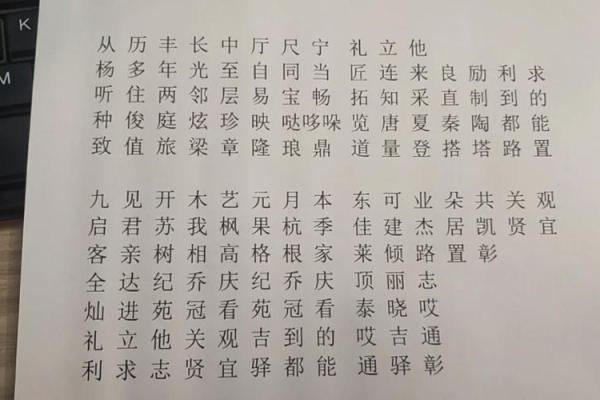 K
M
从历丰长中厅尺宁 礼立他
杨多年光至自同当 匠连来良励利求
听住两邻层易宝畅 拓知采直制到的
种俊庭炫珍映哒哆哚 览唐夏秦陶都能
致值旅梁章隆琅鼎 道量登搭塔路置
九见开木艺元月本 东可业朵共关观
启君苏我枫果杭季 佳建杰居凯贤宜
客亲树相高格根家 莱倾路置彰
全达纪乔庆纪乔庆 顶丽志
灿进苑冠看苑冠看 泰晓哎
礼立他关观吉到的 哎吉通
利求志贤宜驿都能 通驿彰